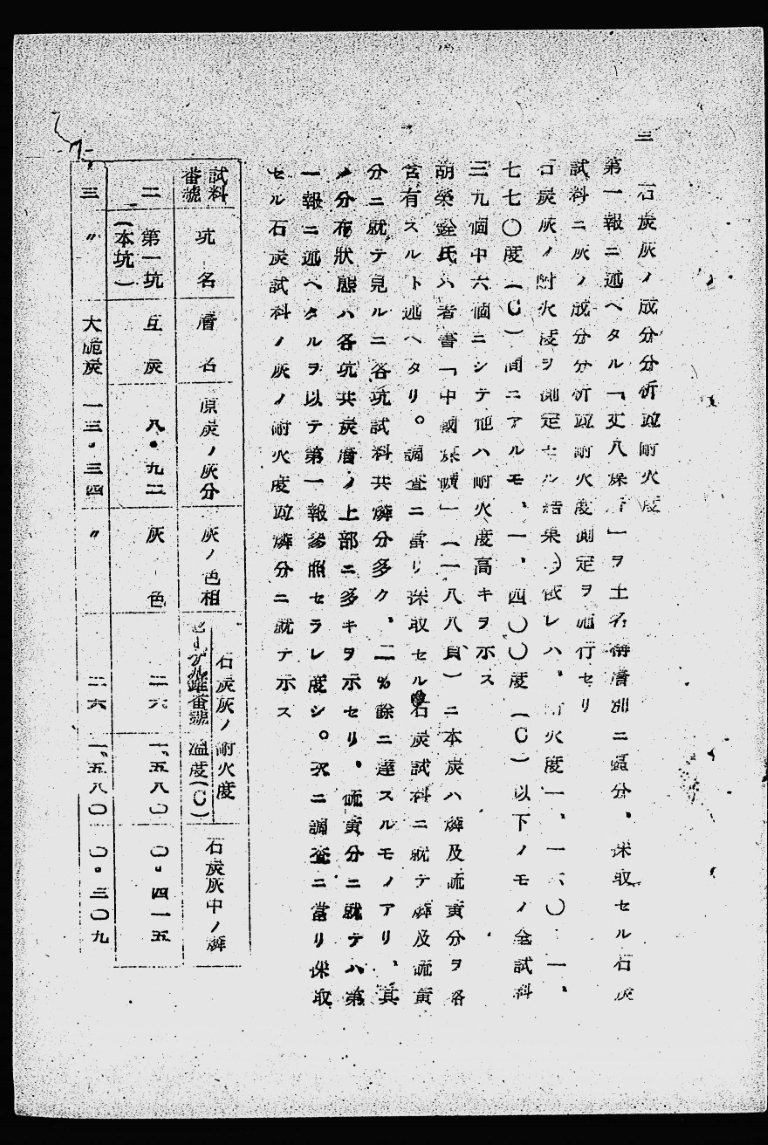 三 石炭灰ノ成分分析竝耐火度
第一報ニ述ヘタル「丈八 」ヲ土名 層別ニ區分、採取セル石炭
試料ニ灰ノ成分分析竝耐火度測定ヲ施行セリ
石炭灰ノ耐火度ヲ測定セル結果ニ依レハ、耐火度一、一六〇 一、
七七〇度(C)間ニアルモ、一、四〇〇度(C)以下ノモノ全試料
三九個中六個ニシテ他ハ耐火度高キヲ示ス
胡榮銓氏ハ著書「中國炭礦」(一八八頁)ニ本炭ハ燐及硫黄分ヲ多
含有スルト述ヘタリ。調査ニ當リ採取セル石炭試料ニ就テ燐及硫黄
分ニ就テ見ルニ各坑試料共燐分多ク、二%餘ニ達スルモノアリ、其
ノ分布狀態ハ各坑共炭層ノ上部ニ多キヲ示セリ、硫黄分ニ就テハ第
一報ニ述ヘタルヲ以テ第一報參照セラレ度シ。次ニ調査ニ當リ採取
セル石炭試料ノ灰ノ耐火度竝燐分ニ就テ示ス
試料番號 坑名 層名 原炭ノ灰分 灰ノ色相 石炭灰ノ耐火度 ゼーゲル錐番號 溫度(C) 石炭灰中ノ燐
二 第一坑(本坑) 互炭 八・九二 灰色 二六 一、五八〇 〇・四一五
三 〃 大 炭 一三・三四 〃 二六 一、五八〇 〇・三〇九